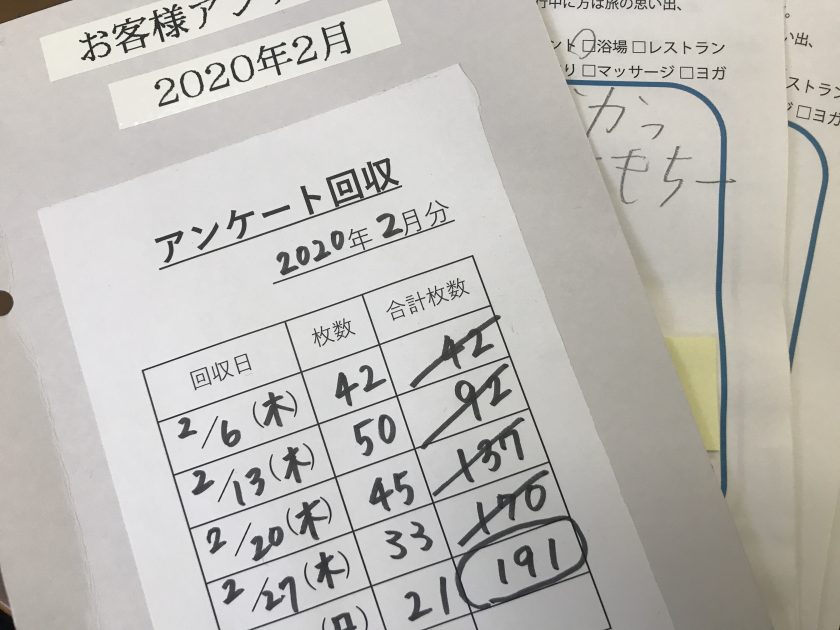 お客様アン
2020年2月
アンケート回収
2020年 2月分
回収日 枚数 合計枚数
2/6(木) 42 42
2/13(木) 50 92
2/20(木) 45 137
2/27(木) 33 170
(月) 21 191
行中に方は旅の思い出、
ント □浴場 □レストラン
り □マッサージ □ヨガ
かっ
もちー
い出、
ストラン
□ヨガ